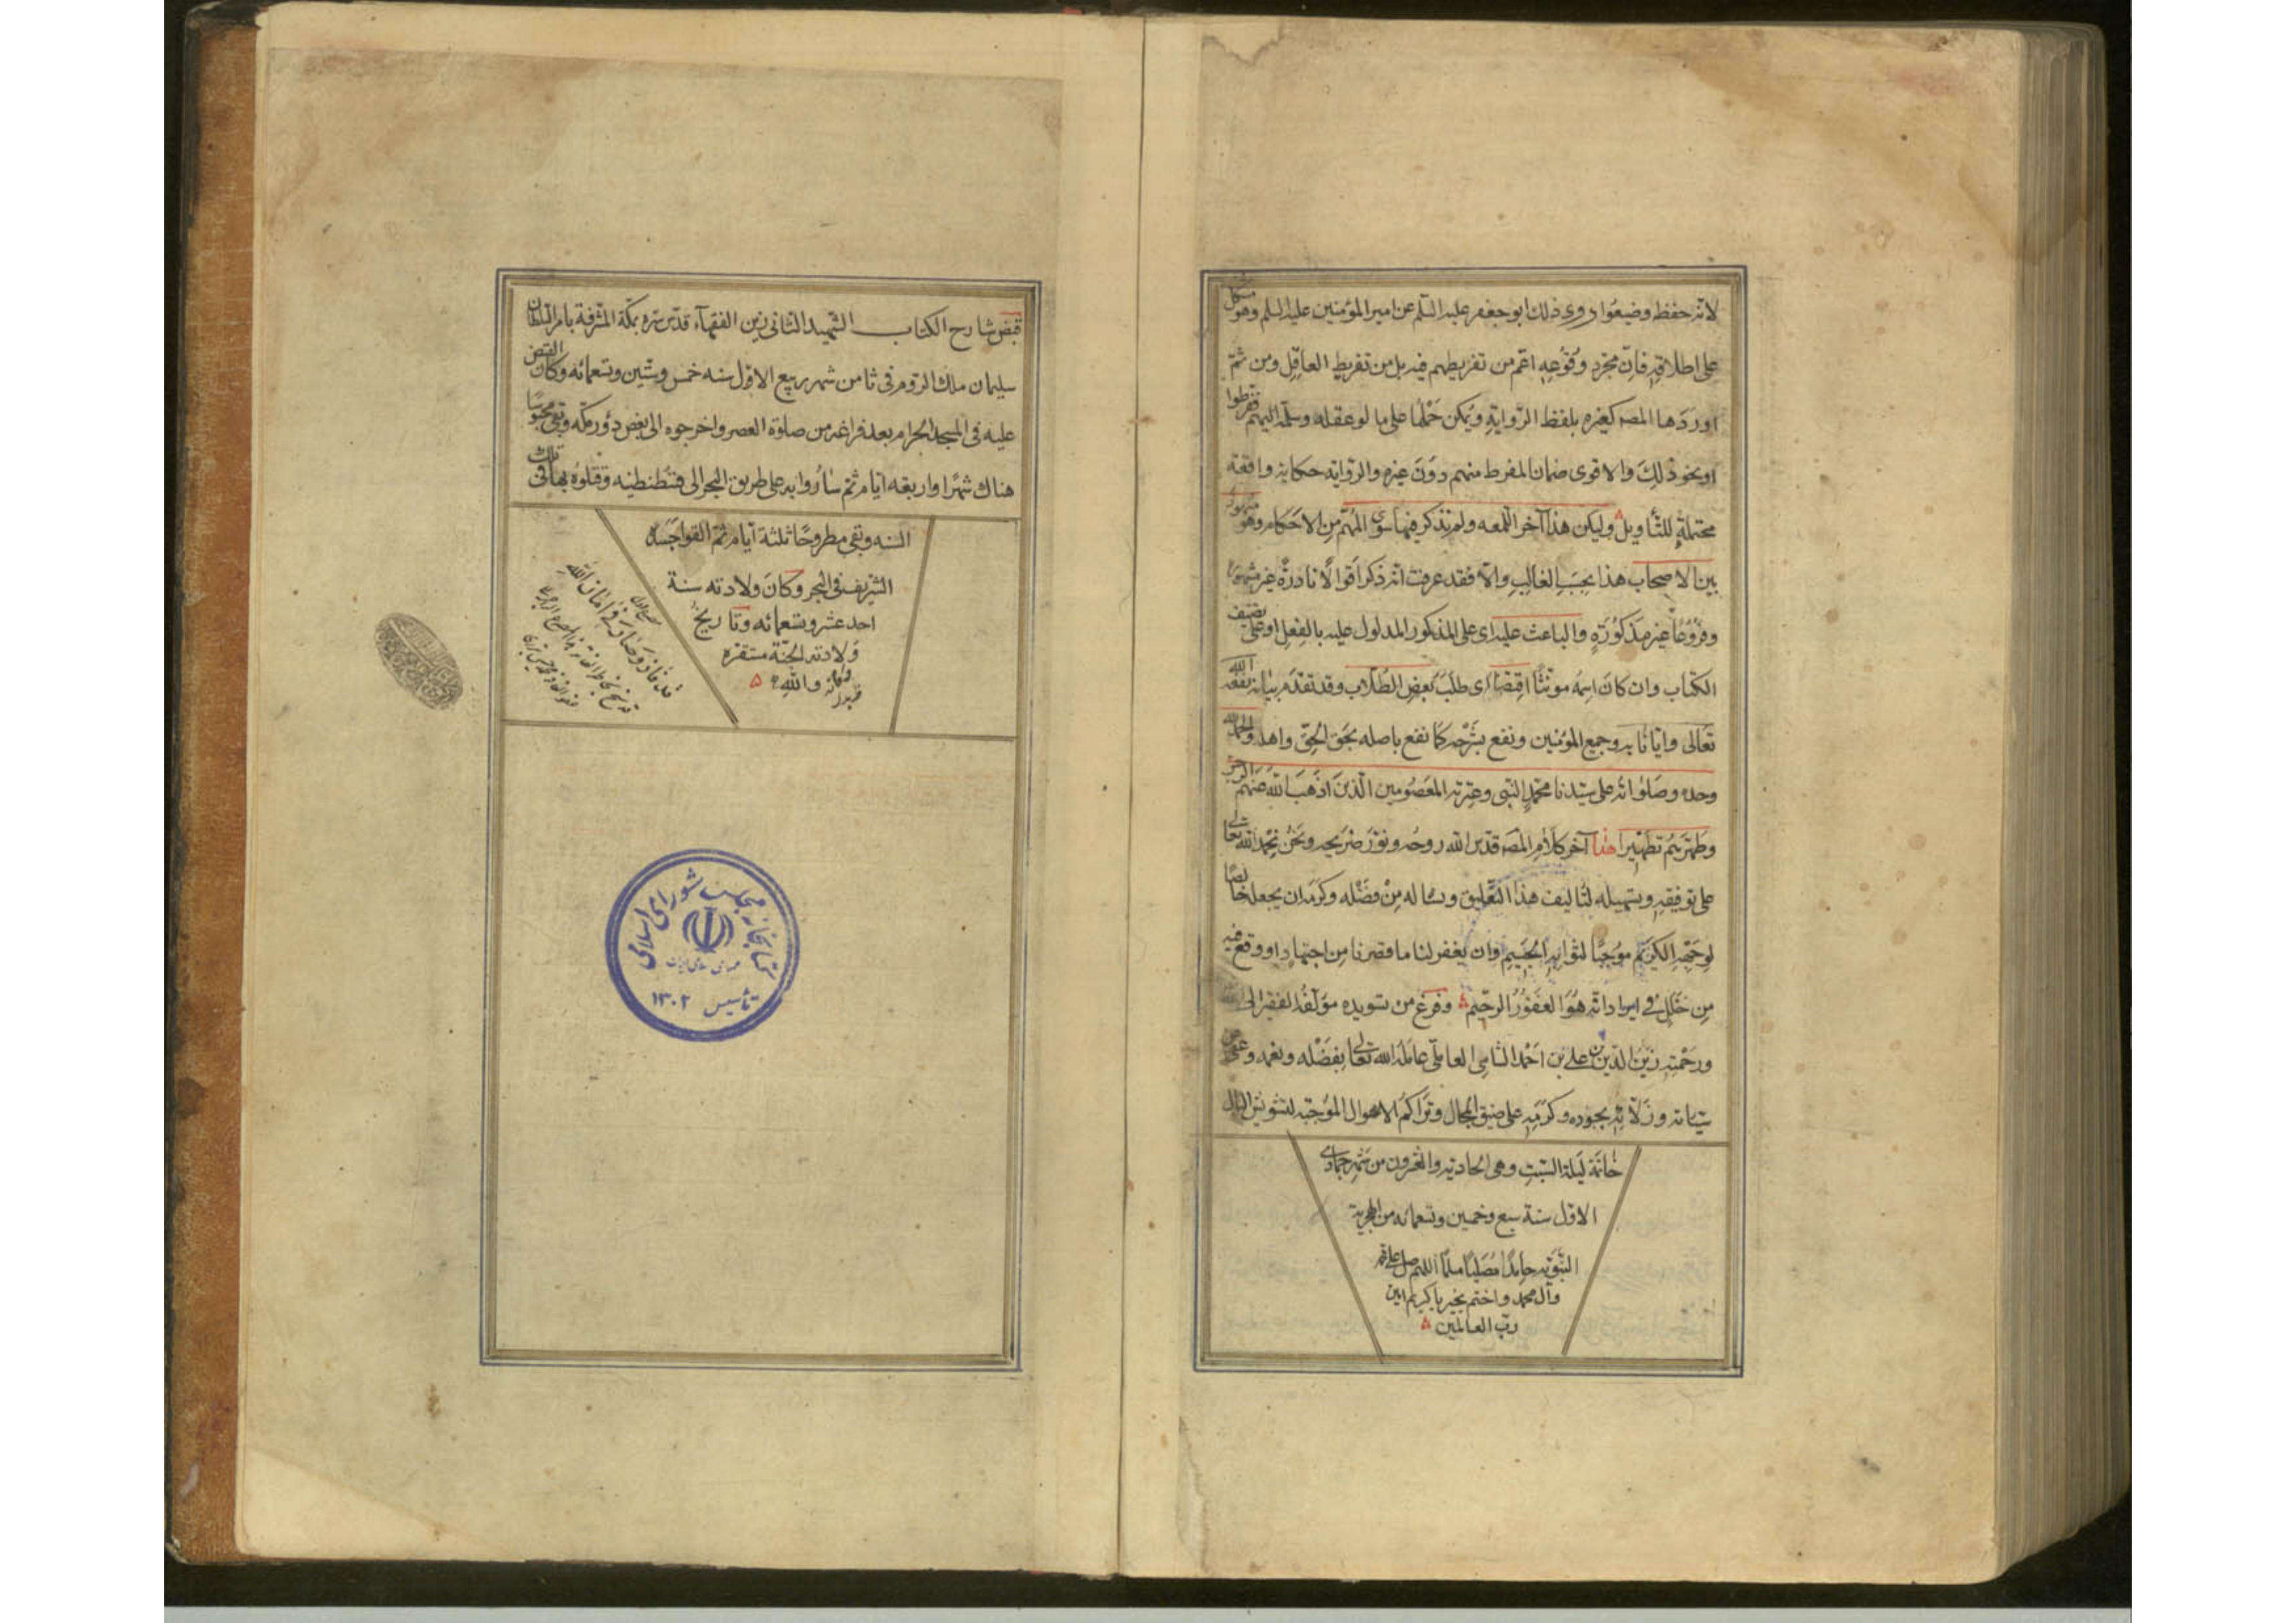 لانه حفظ وضيعوا وروى ذلك ابو جعفر عليه السلم عن امير المؤمنين عليه السلم وهو مشكل
على اطلاقه فان مجرد وقوعه اعم من تفريطهم فيه بل من تفريط العاقل ومن ثم
اوردها المصه كغيره بلفظ الرواية ويمكن حملها على ما لو عقله وسلمه اليهم ففرطوا
او نحو ذلك والاقوى ضمان المفرط منهم دون غيره والرواية حكاية واقعة
محتملة للتأويل وليكن هذا آخر اللمعه ولم نذكر فيها سوى المهم من الاحكام وهو المشهور
بين الاصحاب هذا بحسب الغالب والا فقد عرفت انه ذكر اقوالا نادرة غير مشهورة
وفروعا غير مذكورة والباعث عليه اى على المذكور المدلول عليه بالفعل او على تصنيف
الكتاب وان كان اسمه مونثا اقتضاء اى طلب بعض الطلاب وقد تقدم بيانه نفعه الله
تعالى وايانا به وجميع المؤمنين ونفع بشرحه كما نفع باصله بحق الحق واهله والحمد لله
وحده وصلواته على سيدنا محمد النبى وعترته المعصومين الذين اذهب الله عنهم الرجس
وطهرهم تطهيرا هذا آخر كلام المصه قدس الله روحه ونور ضريحه ونحن نحمد الله تعالى
على توفيقه وتسهيله لتأليف هذا التعليق ونسأله من فضله وكرمه ان يجعله خالصا
لوجهه الكريم موجبا لثوابه الجسيم وان يغفر لنا ما قصرنا من اجتهاد او وقع فيه
من خلل في ايراد انه هو الغفور الرحيم وفرغ من تسويده مؤلفه الفقير الى الله
ورحمته زين الدين بن على بن احمد الشامى العاملى عامله الله تعالى بفضله ونعمه وعفى عن
سيئاته وزلاته بجوده وكرمه على ضيق المجال وتراكم الاهوال الموجبة لتشويش البال
خاتمة ليلة السبت وهى الحادية والعشرون من شهر جمادى
الاول سنة سبع وخمسين وتسعمائه من الهجرية
النبوية حامدا مصليا مسلما اللهم صل على محمد
وآل محمد واختم بخير يا كريم امين
رب العالمين
قبض شارح الكتاب الشهيد الثانى زين الفقهآء قدس سره بمكة المشرفة بامر السلطان
سليمان ملك الروم فى ثامن شهر ربيع الاول سنه خمس وستين وتسعمائه وكان القبض
عليه فى المسجد الحرام بعد فراغه من صلوة العصر واخرجوه الى بعض دور مكه وبقى محبوسا
هناك شهرا واربعه ايام ثم ساروا به على طريق البحر الى قسطنطنيه وقتلوه بها فى تلك
السنه وبقى مطروحا ثلثة ايام ثم القوا جسده
الشريف فى البحر وكان ولادته سنة
احد عشر وتسعمائه وتاريخ
ولادته الجنة مستقره
والله
كتابخانه مجلس شورای اسلامی
تأسیس ۱۳۰۲